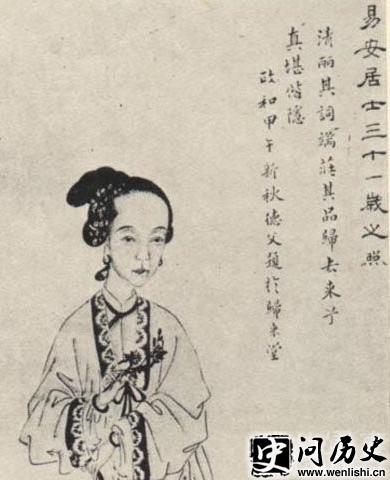 易安居士三十一歲之照
清丽其詞端莊其品歸去来兮
真堪偕隱
政和甲午新秋德父題於歸来堂
史问历史
www.wenlishi.cn